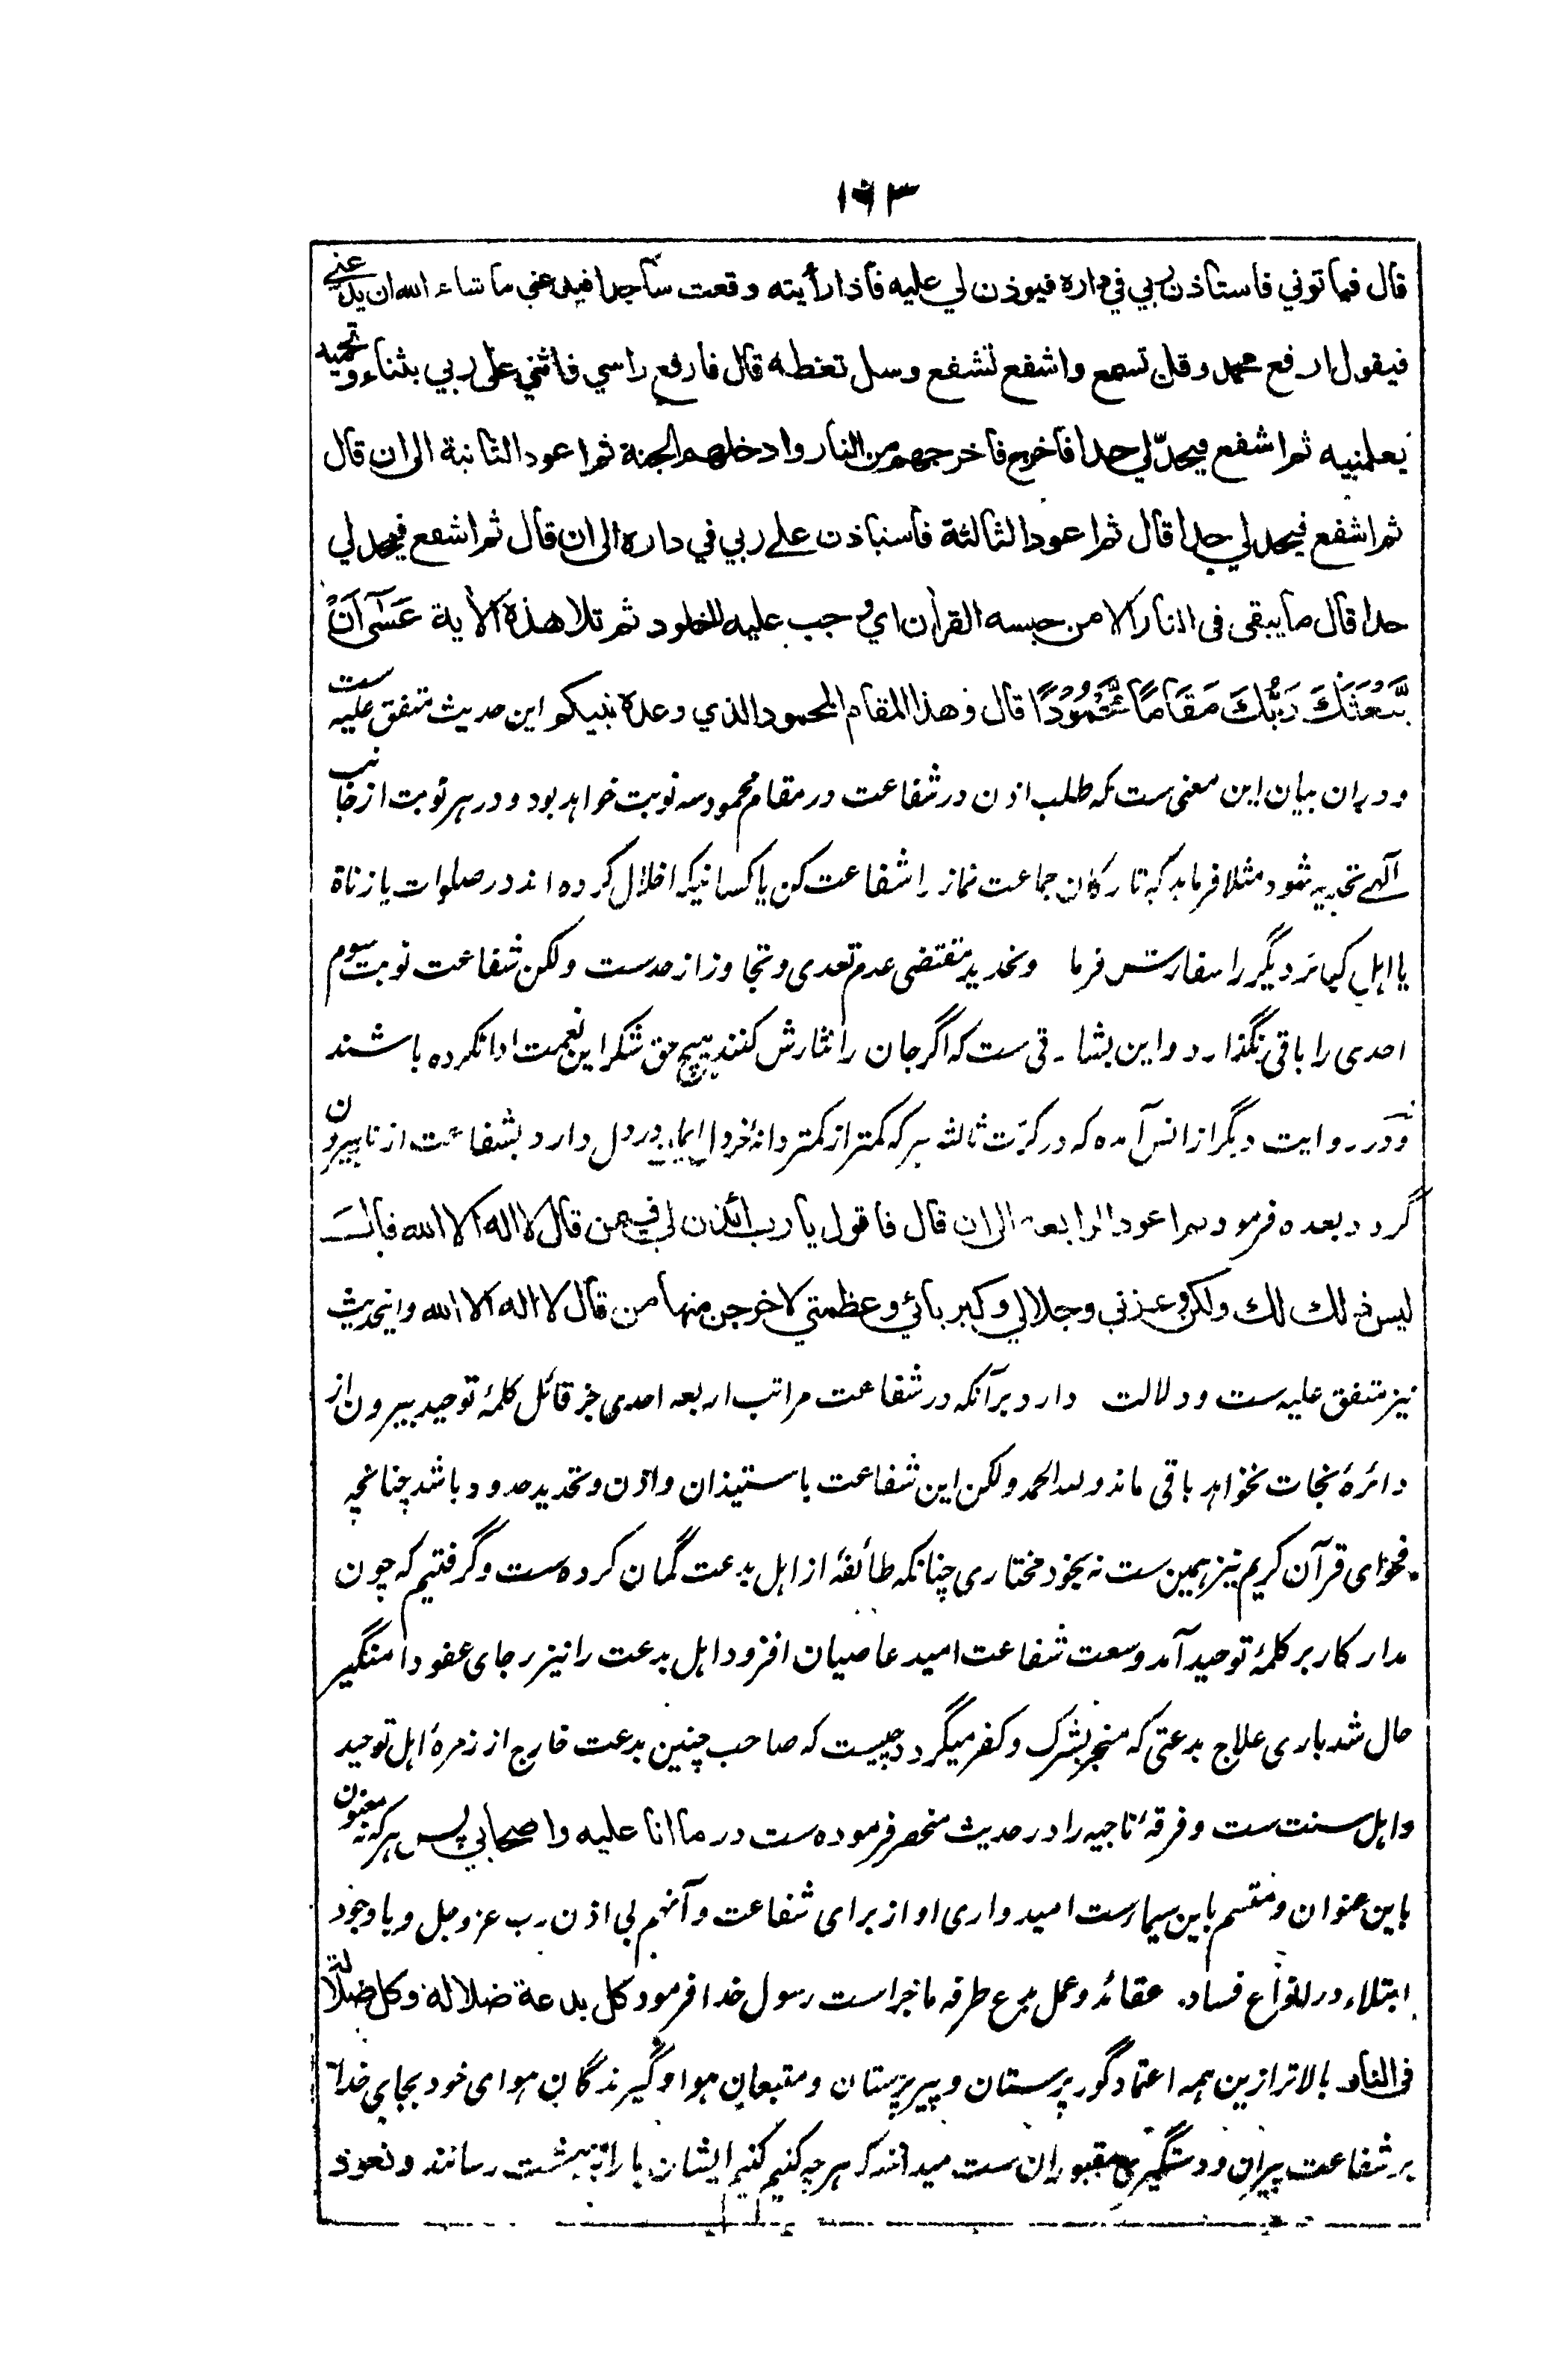 ١٦٣
قال فياتوني فاستاذن ربي في داره فيوذن لي عليه فاذا رأيته وقعت ساجدا فيدعني ما شاء الله ان يدعني
فيقول ارفع محمد وقل تسمع واشفع تشفع وسل تعطه قال فارفع راسي فاثني على ربي بثناء وتحميد
يعلمنيه ثم اشفع فيحدّ لي حدا فاخرج فاخرجهم من النار وادخلهم الجنة ثم اعود الثانية الى ان قال
ثم اشفع فيحد لي حدا قال ثم اعود الثالثة فاستاذن على ربي في داره الى ان قال ثم اشفع فيحد لي
حدا قال ما يبقى فى النار الا من حبسه القرآن اي وجب عليه الخلود ثم تلا هذه الآية عَسَىٓ اَنْ
يَّبْعَثَكَ رَبُّكَ مَقَامًا مَّحْمُوْدًا قال وهذا المقام المحمود الذي وعده نبيكم این حدیث متفق علیه ست
ودران بیان این معنی ست که طلب اذن در شفاعت در مقام محمود سه نوبت خواهد بود و در هر نوبت از جانب
آلهی تحدید شود مثلا فرماید که تارکان جماعت نماز را شفاعت کن یا کسانیکه اخلال کرده اند در صلوات یا زناة
یا اهل کبائر دیگر را سفارش فرما وتحدید مقتضی عدم تعدی وتجاوز از حدست ولکن شفاعت نوبت سوم
احدی را باقی نگذارد واین بشارتی ست که اگر جان را نثارش کنند هیچ حق شکر این نعمت ادا نکرده باشند
ودر روایت دیگر از انس آمده که در کرّت ثالثه هر که کمتر از کمتر دانۀ خردل ایمان در دل دارد بشفاعت از نار بیرون
گردد بعده فرمود ثم اعود الرابعة الى ان قال فاقول يا رب ائذن لي فيمن قال لا اله الا الله قال
ليس ذلك لك ولكن وعزتي وجلالي وكبريائي وعظمتي لاخرجن منها من قال لا اله الا الله واینحدیث
نیز متفق علیه ست ودلالت دارد برآنکه در شفاعت مراتب اربعه احدی جز قائل کلمۀ توحید بیرون از
دائرۀ نجات نخواهد باقی ماند ولله الحمد ولکن این شفاعت باستیذان واذن وتحدید حدود باشد چنانچه
فحوای قرآن کریم نیز همین ست نه بخود مختاری چنانکه طائفۀ از اهل بدعت گمان کرده ست وگرفتیم که چون
مدار کار بر کلمۀ توحید آمد وسعت شفاعت امید عاصیان افزود اهل بدعت را نیز رجای عفو دامنگیر
حال شد باری علاج بدعتی که منجر بشرک وکفر میگردد چیست که صاحب چنین بدعت خارج از زمرۀ اهل توحید
واهل سنت ست وفرقۀ ناجیه را در حدیث منحصر فرموده ست در ما انا عليه واصحابي پس هر که نه معنون
باین عنوان ومتسم باین سیما رست امیدواری او از برای شفاعت وآنهم بی اذن رب عز وجل وبا وجود
ابتلاء در انواع فساد عقائد وعمل مبرع طرفه ماجراست رسول خدا فرمود كل بدعة ضلالة وكل ضلالة
فى النار بالاتر ازین همه اعتماد گور پرستان وپیر پرستان ومتبعان هوا وگیرندگان هوای خود بجای خدا
بر شفاعت پیران ودستگیری مقبوران ست میدانند که هر چه کنیم کنیم ایشان ما را به بهشت رسانند ونعوذ